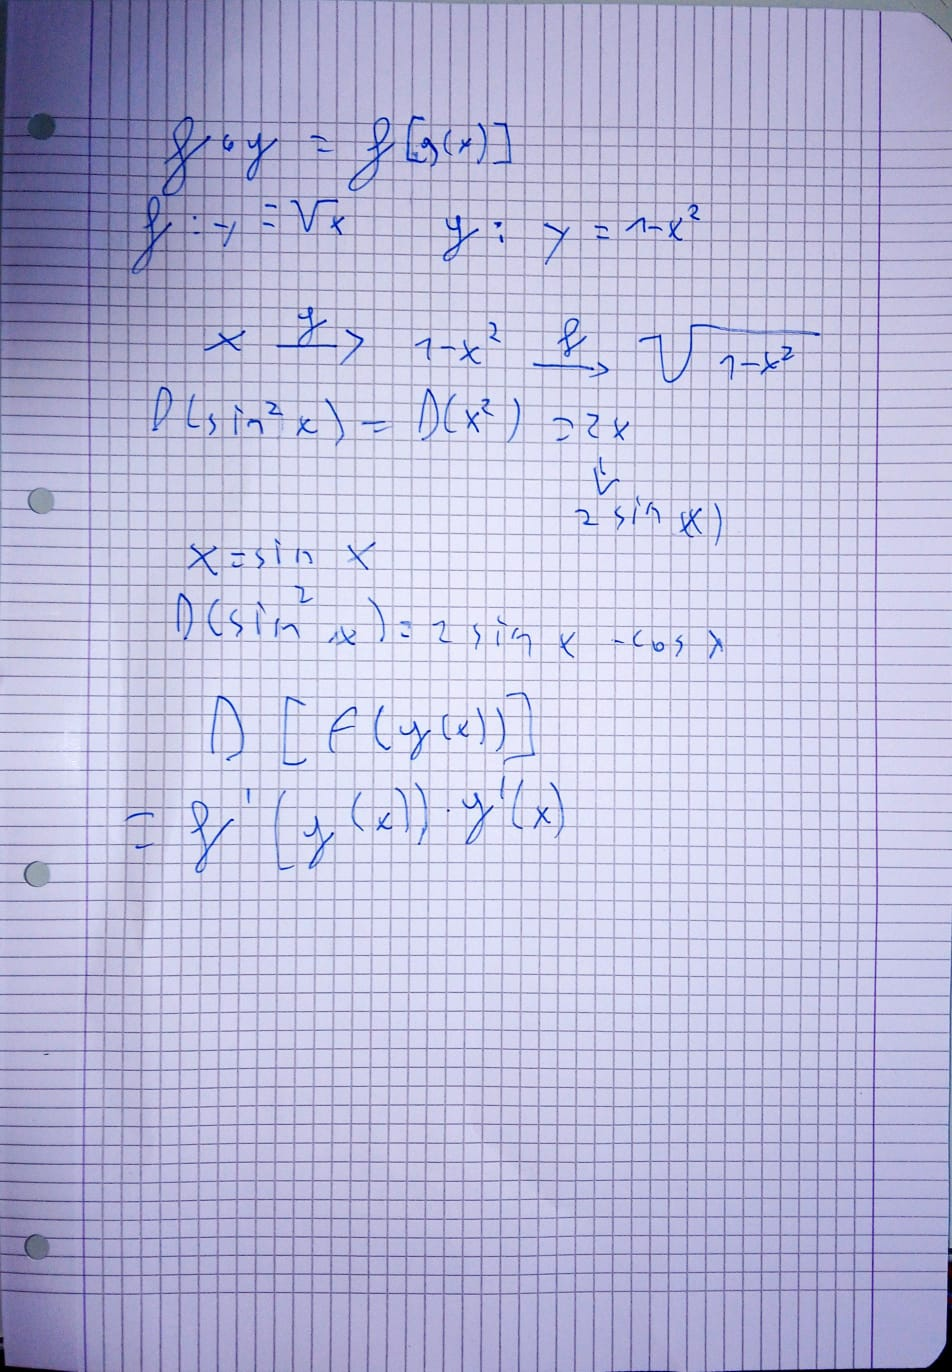 f∘g = f[g(x)]
f: y = √x g: y = 1-x²
x —g→ 1-x² —f→ √(1-x²)
D(sin² x) = D(x²) = 2x
↓
2 sin(x)
x = sin x
D(sin² x) = 2 sin x · cos x
D [f(g(x))]
= f'(g(x)) · g'(x)